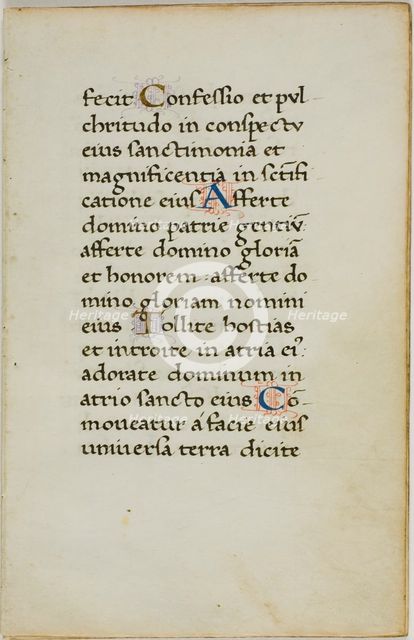 fecit Confessio et pul
chritudo in conspectu
eius sanctimonia et
magnificentia in sctifi
catione eius Afferte
domino patrie gentiū
afferte domino gloriā
et honorem: afferte do
mino gloriam nomini
eius Tollite hostias
et introite in atria ei9
adorate dominum in
atrio sancto eius Cō
moveatur á facie eius
universa terra dicite
Heritage
Heritage
Heritage
Heritage
Heritage
Heritage